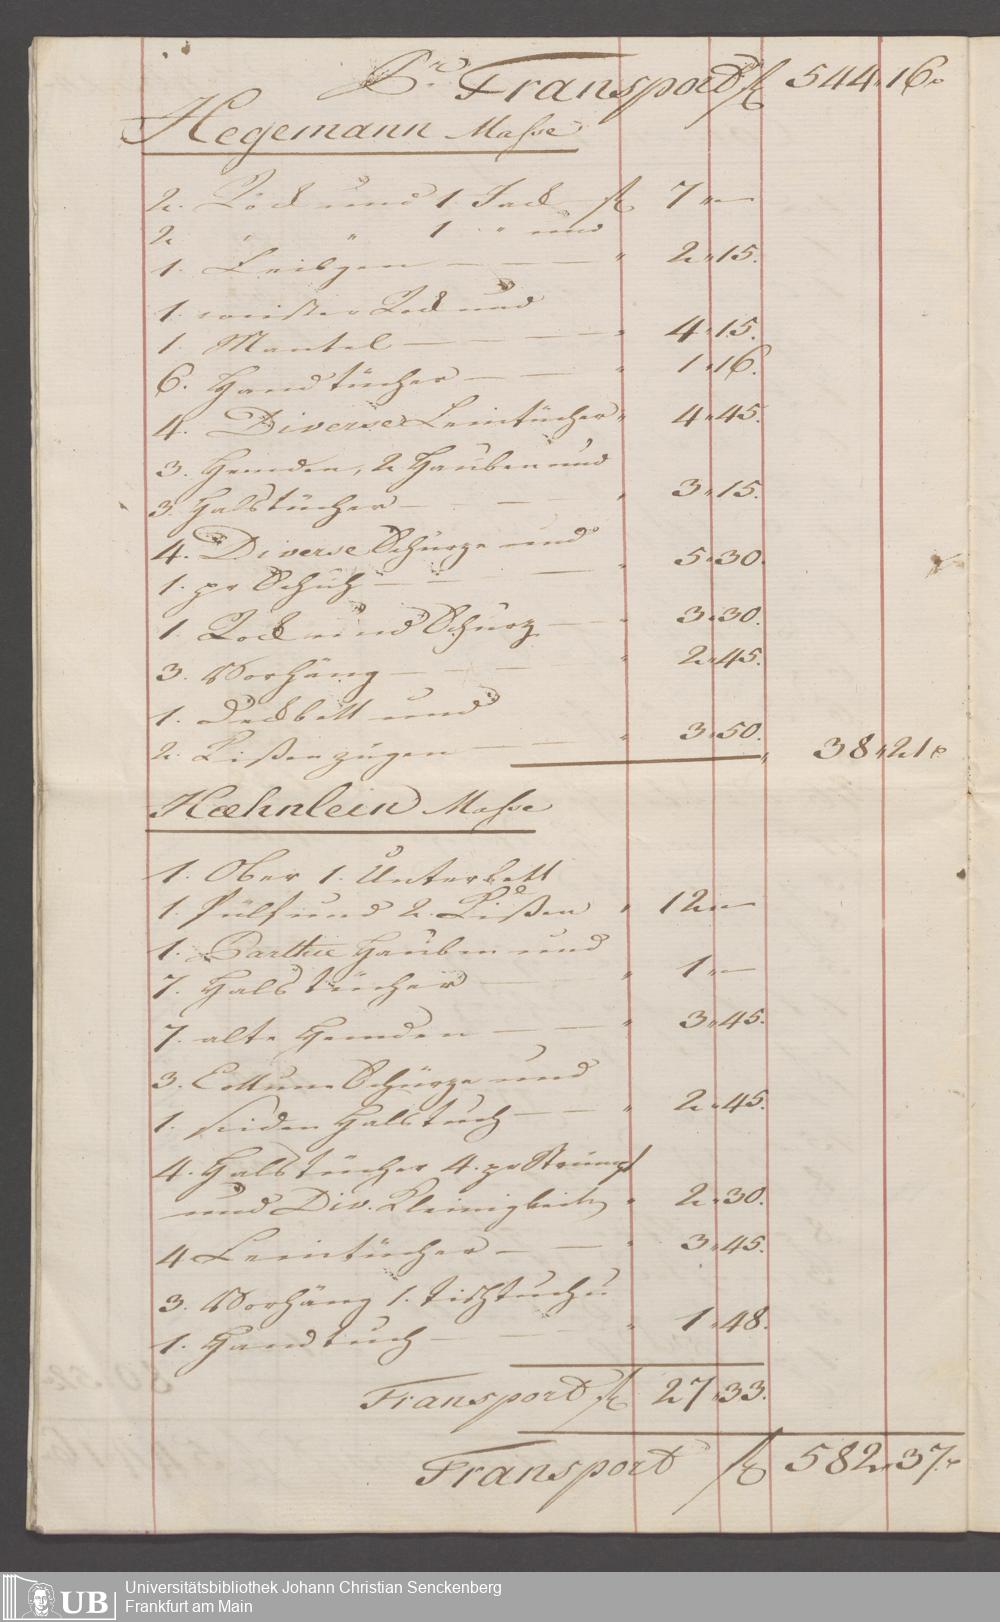 Pr. Transport fl 544 " 16.
Hegemann Masse
2. Röck und 1 Jack fl 7 " —
2 " " 1 " und
1. Leibgen — — — " 2 " 15.
1. weißer Rock und
1. Mantel — — — " 4 " 15.
6. Handtücher — — " 1 " 16.
4. Diverse Leintücher " 4 " 45.
3. Hemden, 2 Hauben und
3. Halstücher — — — " 3 " 15.
4. Diverse Schürze und
1. pr Schuh — — — " 5 " 30.
1. Rock und Schürz — " 3 " 30.
3. Vorhäng — — — " 2 " 45.
1. Deckbett und
2. Kißenzügen — — " 3 " 50. " 38 " 21
Hæhnlein Masse
1. Ober 1. Unterbett
1. Pülf und 2. Kißen " 12 " —
1. Parthie Hauben und
7. Halstücher — — " 1 " —
7. alte Hemden — — " 3 " 45.
3. Cottune Schürze und
1. seiden Halstuch — — " 2 " 45.
4. Halstücher 4. pr Strümpf
und Div. Kleinigkeiten " 2 " 30.
4 Leintücher — — " 3 " 45.
3. Vorhäng 1. Tischtuch u
1. Handtuch — — — " 1 " 48.
Transport fl 27 " 33.
Transport fl 582 " 37.
Universitätsbibliothek Johann Christian Senckenberg
Frankfurt am Main
UB